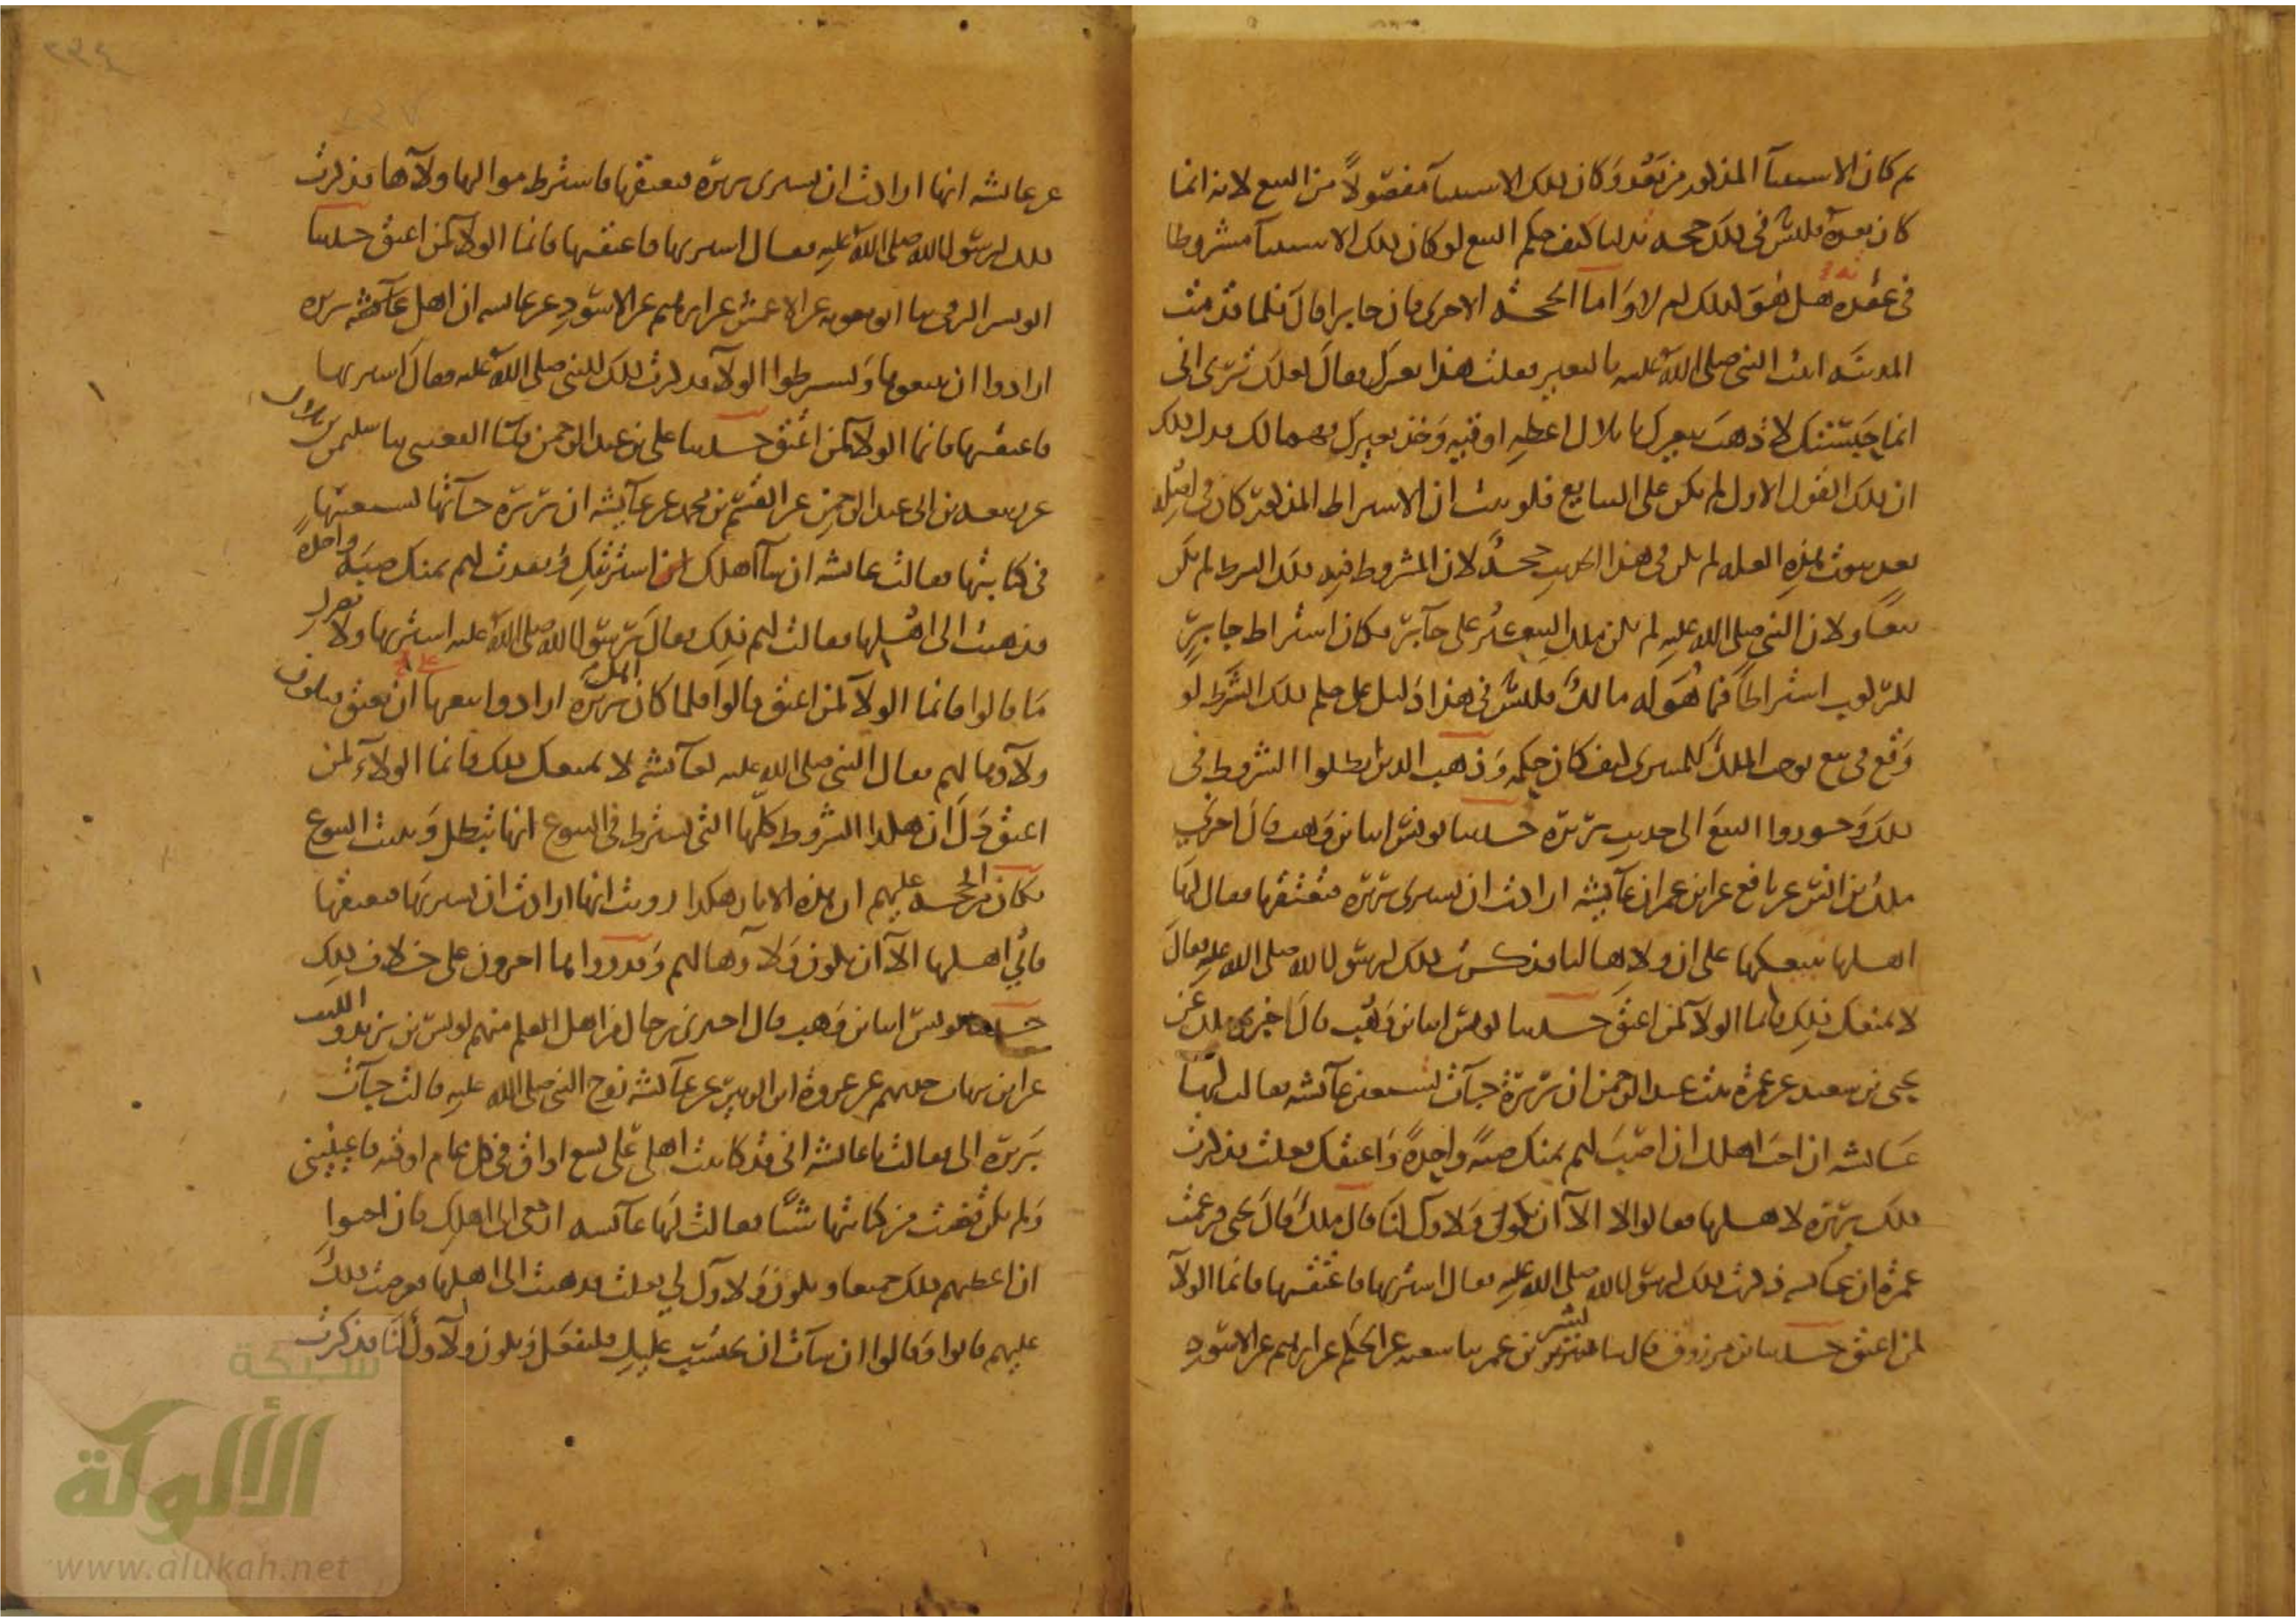 ثم كان الاستثنآ المذكور من بَعْد وَكان ذلك الاستثنآ مفصولاً من البيع لانه انما
كان بعدهُ فليس في ذلك حجه تدلنا كيف حكم البيع لو كان ذلك الاستثنآ مشروطا
في عُقدَه هَل هُوَ كذلك ام لا وَاما الحجه الاخرى فان جابرا قالَ فلما قدمت
المدينَه اتيت النبي صلى الله عليه بالبعير فقلت هذا بعيرك فقالَ لعلك تَرَى اني
انما حَبَسْتك لاذهبَ ببعيرك يا بلال اعطِهِ اوقيه وَخذ بعيرك فهما لك فدل ذلك
ان ذلك القول الاول لم يكن على التبايع فلو ثبت ان الاشتراط المذكور كان في اصله
بعد ثبوت هذه العله لم يكن في هذا الحديث حجهٌ لان المشروط فيه ذلك الشرط لم يكن
بيعًا ولان النبي صلى الله عليه لم يكن ملك البعير على جابر فكان اشتراط جابرٍ
للركوب اشتراطاً فيما هُوَ له مالكٌ فليس في هذا دَليل على حكم ذلك الشَّرط لو
وَقع في بيع يوجب الملك للمشترى كيف كان حكمه وَذهب الذين ابطلوا الشروط في
ذلك وَجوزوا البيعَ الى حديث بَرِيرَة حدثنا يونس انبا ابن وَهب قالَ اخبرني
ملك بن انس عن نافع عن ابن عمر ان عآيشه ارادت ان تشترى بَرِيرَة فتُعتقها فقال لهَا
اهلها نبيعكها على ان ولاها لنا فذكرت ذلك لرسول الله صلى الله عليه فقالَ
لا يمنعك ذلك فانما الولآ لمن اعتقَ حدثنا يونس انبا بن وَهْب قالَ اخبرني ملك عَن
يحيى بن سعيد عن عمرة بنت عبد الرحمن ان بَرِيرَة جآت تستعين عآئشه فقالت لهَا
عَائشه ان احَب اهلك ان اصُبَّ لهم ثمنك صبةً وَاحِدةً وَاعتقك فعلت فذكرت
ذلك بَرِيرَة لاهلها فقالوا لا الا ان يكونَ وَلاوكِ لنَا قالَ ملكٌ قالَ يحيى فزعمت
عمرة ان عائشه ذكرت ذلك لرسول الله صلى الله عليه فقال اشتريها فاعتقيها فانما الولآ
لمن اعتق حدثنا بن مرزوق قال ثنا بشر بن عمر ثنا شعبه عن الحكم عن ابراهيم عن الاسود
عن عائشه انها ارادت ان تشترى بريرة فتعتقها فاشترط مواليها ولآها فذكرت
ذلك لرسول الله صلى الله عليه فقال اشتريها فاعتقيها فانما الولآ لمن اعتق حدثنا
ابو بشر الرقي ثنا ابو معويه عن الاعمش عن ابراهيم عن الاسود عن عائشه ان اهل بريره
ارادوا ان يبيعوها وَيشترطوا الولآ فذكرت ذلك للنبي صلى الله عليه فقالَ اشتريها
فاعتقيها فانما الولآ لمن اعتق حدثنا على بن عبد الرحمن ثنا القعنبى ثنا سليمن بن بلال
عن ربيعه بن ابى عبد الرحمن عن القسم بن محمد عن عآيشه ان بَرِيرَة جآتها تستعينها
في كتابتها فقالت عائشه ان شآ اهلك اشتريتكِ وَنقدت لهم ثمنك صبَّة واحدة
فذهبت الى اهلها فقالت لهم ذلِك فقالَ رسول الله صلى الله عليه اشتريها ولا يضرك
مَا قالوا فانما الولآ لمن اعتق قالوا فلما كان اهل بَرِيرَة ارادوا بيعها على ان تعتق ويكون
ولآوها لهم فقال النبي صلى الله عليه لعآئشه لا يمنعك ذلك فانما الولآء لمن
اعتق دَلَّ ان هكذا الشروط كلّها التى تشترط في البيوع انها تبطل وَيثبت البيوع
فكان من الحجه عليهم ان هذه الاثار هكذا رويت انها ارادت ان تشتريَها فتعتقها
فأبي اهلها الا ان يكون وَلاوها لهم وَقد رواها اخرون على خلاف ذلِك
حدثنا يونس انبا بن وَهب قال اخبرنى رجال من اهل العلم منهم يونس بن يزيد والليث
عن ابن شهاب حدثهم عن عروة ابن الزبير عن عآئشه زوج النبى صلى الله عليه قالت جآت
بَرِيرة الى فقالت يا عائشه انى قد كاتبت اهلى عَلى تسع اواقٍ في كل عام اوقيه فاعينينى
وَلم تكن قضت من كتابتها شيًا فقالت لهَا عآئشه ارجعى الى اهلك فان احبوا
ان اعطيهم ذلك جميعا ويكون وَلاوكِ لي فعلت فذهبت الى اهلها فعرضت ذلك
عليهم فابوا وَقالوا ان شآت ان تحتسِب عليكِ فلتفعل وَيكون ولآوكِ لنَا فذكرت
شبكة
الألوكة
www.alukah.net